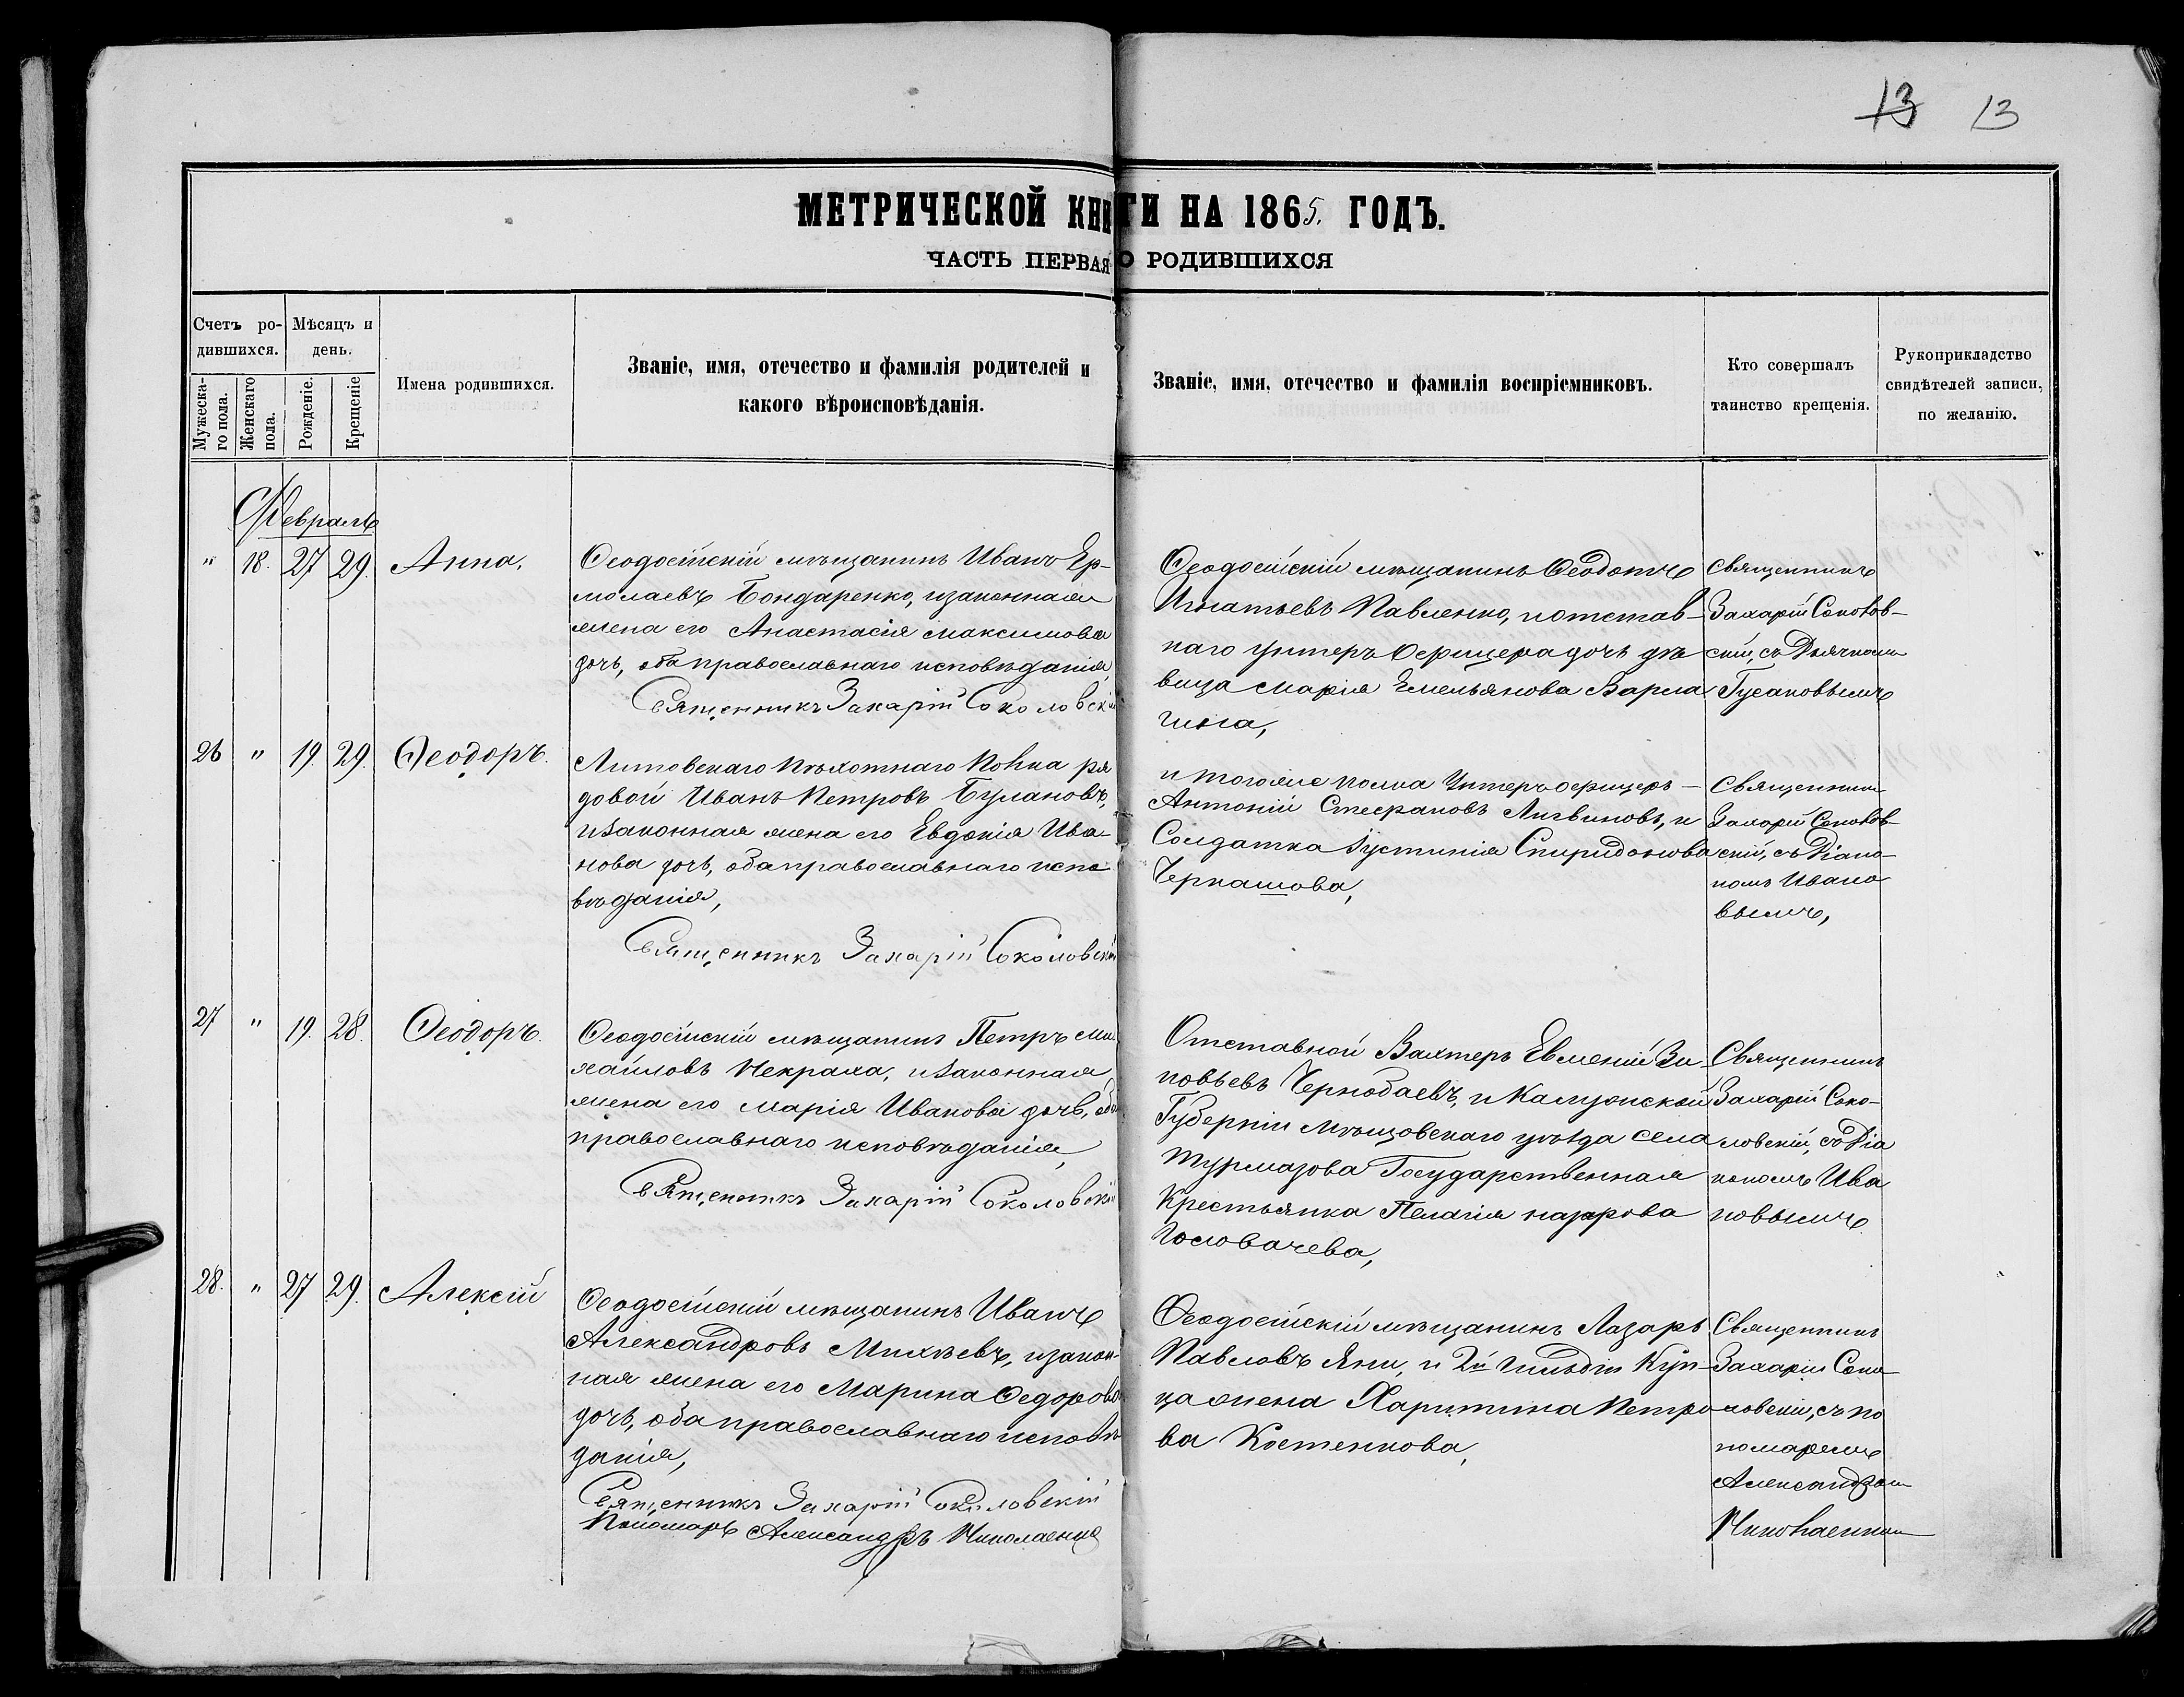 13 13
МЕТРИЧЕСКОЙ КНИГИ НА 1865. ГОДЪ.
ЧАСТЬ ПЕРВАЯ О РОДИВШИХСЯ
Счетъ ро-
дившихся.
Мѣсяцъ и
день.
Мужеска-
го пола.
Женскаго
пола.
Рожденіе.
Крещеніе
Имена родившихся.
Званіе, имя, отечество и фамилія родителей и
какого вѣроисповѣданія.
Званіе, имя, отечество и фамилія воспріемниковъ.
Кто совершалъ
таинство крещенія.
Рукоприкладство
свидѣтелей записи,
по желанію.
Февраль
" 18. 27 29. Анна,
Ѳеодосійскій мѣщанинъ Иванъ Ер-
молаевъ Бондаренко, изаконная
жена его Анастасія Максимова
дочь, оба православнаго исповѣданія,
Священникъ Захарій Соколовскій
Ѳеодосійскій мѣщанинъ Ѳеодотъ
Игнатьевъ Павленко, иотстав-
наго унтеръ Офицера дочь дѣ
вица Марія Емельянова Варла
гина,
Священникъ
Захарій Соколов-
скій, съ Дьячкомъ
Гусановымъ
26 " 19. 29. Ѳеодоръ.
Литовскаго Пѣхотнаго Полка ря
довой Иванъ Петровъ Булановъ,
изаконная жена его Евдокія Ива-
нова дочь, оба православнаго испо
вѣданія,
Священникъ Захарій Соколовскій
и тогоже полка Унтеръ офицеръ-
Антоній Стефановъ Литвиновъ, и
Солдатка Іустинія Спиридонова
Черкашова,
Священникъ
Захарій Соколов-
скій, съ Діако-
номъ Ивано
вымъ,
27 " 19. 28. Ѳеодоръ.
Ѳеодосійскій мѣщанинъ Петръ Ми-
хайловъ Некраха, изаконная
жена его Марія Иванова дочь, оба
православнаго исповѣданія,
Священникъ Захарій Соколовскій
Отставной Вахтеръ Евменій Зи
новьевъ Чернобаевъ, и Калужской
Губерніи Мѣщовскаго уѣзда села
Государственная
Крестьянка Пелагія
Головачева,
Священникъ
Захарій Соко-
ловскій, съ Діа
кономъ Ива
новымъ
28. " 27 29. Алексій
Ѳеодосійскій мѣщанинъ Иванъ
Александровъ Михѣевъ, изакон-
ная жена его Марина Ѳедорова
дочь, оба православнаго исповѣ
данія,
Священникъ Захарій Соколовскій
Пономарь Александръ Николаенко
Ѳеодосійскій мѣщанинъ Лазарь
Павловъ Яни, и 2й гильдіи Куп-
ца жена Харитина Петро
ва Костенкова,
Священникъ
Захарій Соко
ловскій, съ по
номаремъ
Александромъ
Николаенком